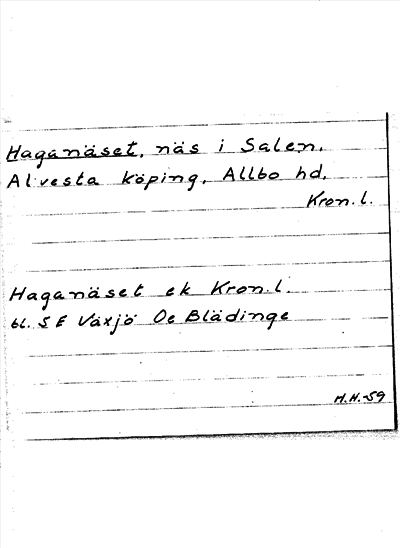 Haganäset, näs i Salen,
Alvesta köping, Allbo hd,
Kron. l.
Haganäset ek Kron. l.
bl. SE Växjö Oe Blädinge
M.H.-59